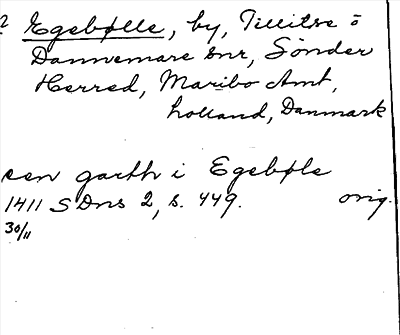 ? Egebølle, by, Tillitse ō
Dannemare snr, Sønder
Herred, Maribo Amt,
Lolland, Danmark
een garth i Egebøle
1411 SDns 2, s. 449. orig.
30/11